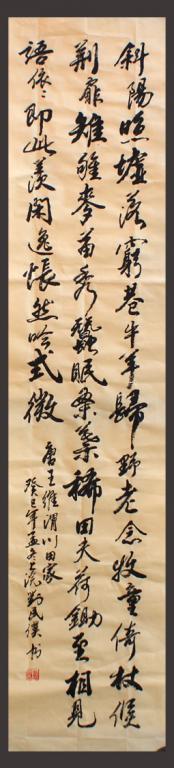 斜陽照墟落窮巷牛羊歸野老念牧童倚杖候
荊扉雉雊麥苗秀蠶眠桑葉稀田夫荷鋤至相見
語依〻即此羨閑逸悵然吟式微
唐王維渭川田家
癸巳年孟冬上浣劉民